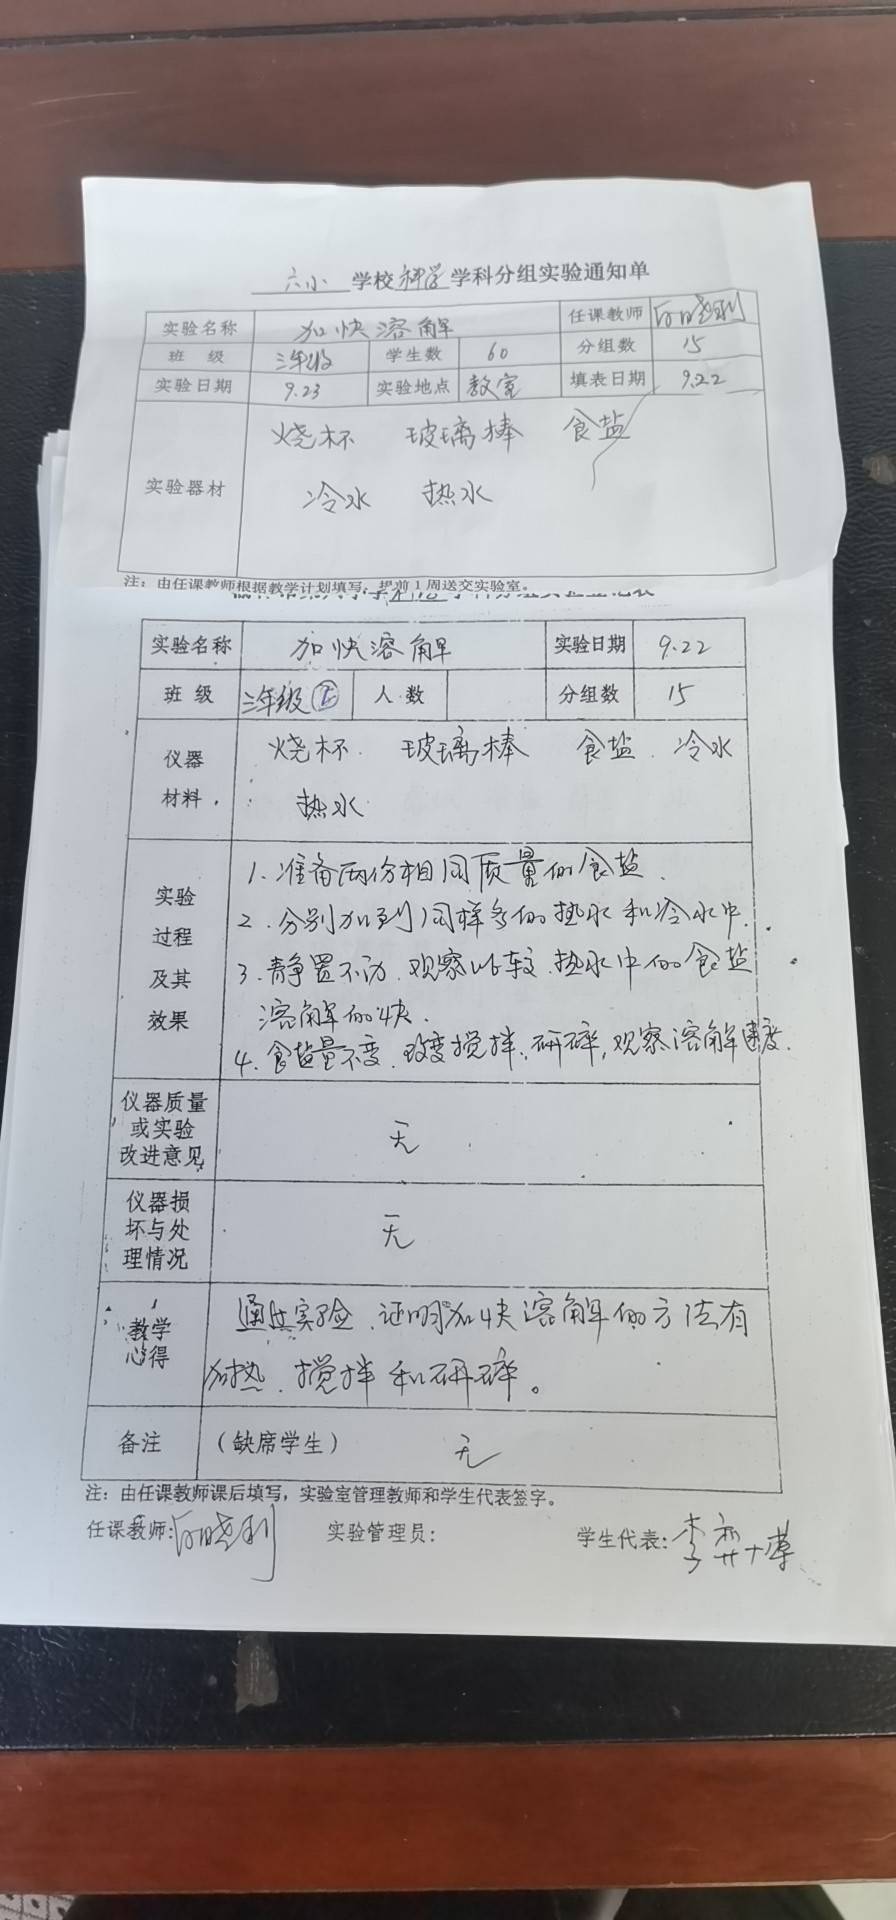 六小 学校科学学科分组实验通知单
实验名称 加快溶解 任课教师
班 级 三年级 学生数 60 分组数 15
实验日期 9.23 实验地点 教室 填表日期 9.22
实验器材 烧杯 玻璃棒 食盐
冷水 热水
注：由任课教师根据教学计划填写，提前1周送交实验室。
实验名称 加快溶解 实验日期 9.22
班 级 三年级 人 数 分组数 15
仪器材料 烧杯. 玻璃棒 食盐. 冷水
热水
实验过程及其效果
1.准备两份相同质量的食盐.
2.分别加到同样多的热水和冷水中.
3.静置不动.观察比较.热水中的食盐
溶解的快.
4.食盐量不变.改变搅拌、研碎,观察溶解速度.
仪器质量或实验改进意见 无
仪器损坏与处理情况 无
教学心得 通过实验.证明加快溶解的方法有
加热.搅拌和研碎。
备注 (缺席学生) 无
注：由任课教师课后填写，实验室管理教师和学生代表签字。
任课教师: 实验管理员: 学生代表: